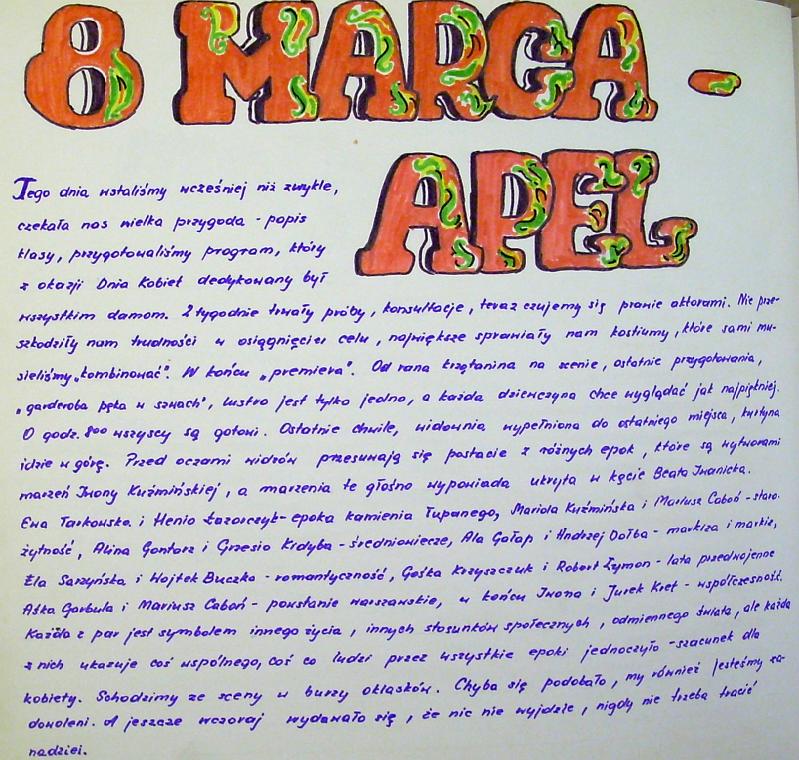 8 MARCA -
APEL
Tego dnia wstaliśmy wcześniej niż zwykle,
czekała nas wielka przygoda - popis
klasy, przygotowaliśmy program, który
z okazji Dnia Kobiet dedykowany był
wszystkim damom. 2 tygodnie trwały próby, konsultacje, teraz czujemy się prawie aktorami. Nie prze-
szkodziły nam trudności w osiągnięciu celu, największe sprawiały nam kostiumy, które sami mu-
sieliśmy „kombinować”. W końcu „premiera”. Od rana krzątanina na scenie, ostatnie przygotowania,
„garderoba pęka w szwach”, lustro jest tylko jedno, a każda dziewczyna chce wyglądać jak najpiękniej.
O godz. 8⁰⁰ wszyscy są gotowi. Ostatnie chwile, widownia wypełniona do ostatniego miejsca, kurtyna
idzie w górę. Przed oczami widzów przesuwają się postacie z różnych epok, które są wytworami
marzeń Iwony Kuźmińskiej, a marzenia te głośno wypowiada ukryta w kącie Beata Iwanicka.
Ewa Tarkowska i Henio Łazorczyk - epoka kamienia łupanego, Mariola Kuźmińska i Mariusz Caboń - staro-
żytność, Alina Gontarz i Grzesio Krdyba - średniowiecze, Ala Gołąp i Andrzej Dołba - markiza i markiz,
Ela Sarzyńska i Wojtek Buczko - romantyczność, Gośka Krzyszczuk i Robert Szymon - lata przedwojenne
Aśka Garbula i Mariusz Caboń - powstanie warszawskie, w końcu Iwona i Jurek Kret - współczesność.
Każda z par jest symbolem innego życia, innych stosunków społecznych, odmiennego świata, ale każda
z nich ukazuje coś wspólnego, coś co ludzi przez wszystkie epoki jednoczyło - szacunek dla
kobiety. Schodzimy ze sceny w burzy oklasków. Chyba się podobało, my również jesteśmy za-
dowoleni. A jeszcze wczoraj wydawało się, że nic nie wyjdzie, nigdy nie trzeba tracić
nadziei.